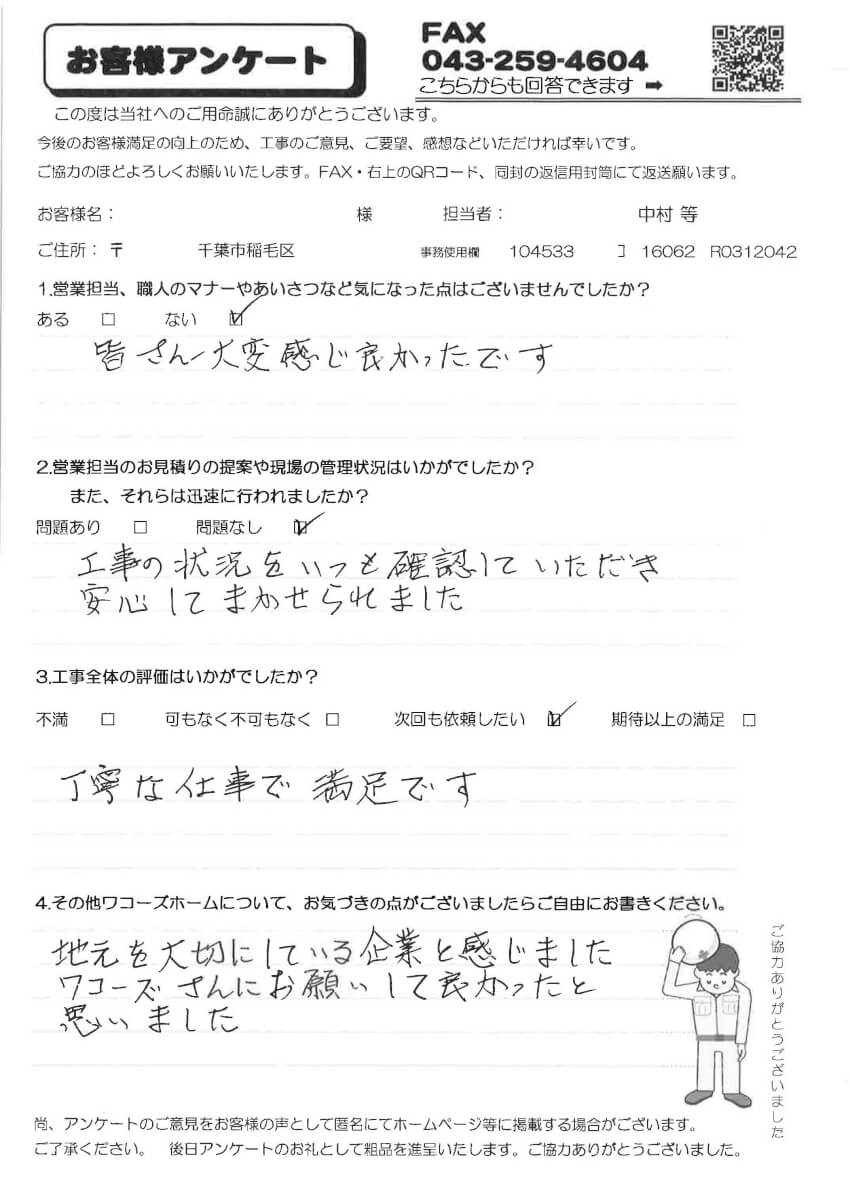 お客様アンケート
FAX
043-259-4604
こちらからも回答できます ➡
この度は当社へのご用命誠にありがとうございます。
今後のお客様満足の向上のため、工事のご意見、ご要望、感想などいただければ幸いです。
ご協力のほどよろしくお願いいたします。FAX・右上のQRコード、同封の返信用封筒にて返送願います。
お客様名： 様 担当者： 中村 等
ご住所：〒 千葉市稲毛区 事務使用欄 104533 コ 16062 R0312042
1.営業担当、職人のマナーやあいさつなど気になった点はございませんでしたか？
ある □ ない ☑
皆さん大変感じ良かったです
2.営業担当のお見積りの提案や現場の管理状況はいかがでしたか？
また、それらは迅速に行われましたか？
問題あり □ 問題なし ☑
工事の状況をいつも確認していただき
安心してまかせられました
3.工事全体の評価はいかがでしたか？
不満 □ 可もなく不可もなく □ 次回も依頼したい ☑ 期待以上の満足 □
丁寧な仕事で満足です
4.その他ワコーズホームについて、お気づきの点がございましたらご自由にお書きください。
地元を大切にしている企業と感じました
ワコーズさんにお願いして良かったと
思いました
ご協力ありがとうございました
尚、アンケートのご意見をお客様の声として匿名にてホームページ等に掲載する場合がございます。
ご了承ください。 後日アンケートのお礼として粗品を進呈いたします。ご協力ありがとうございました。